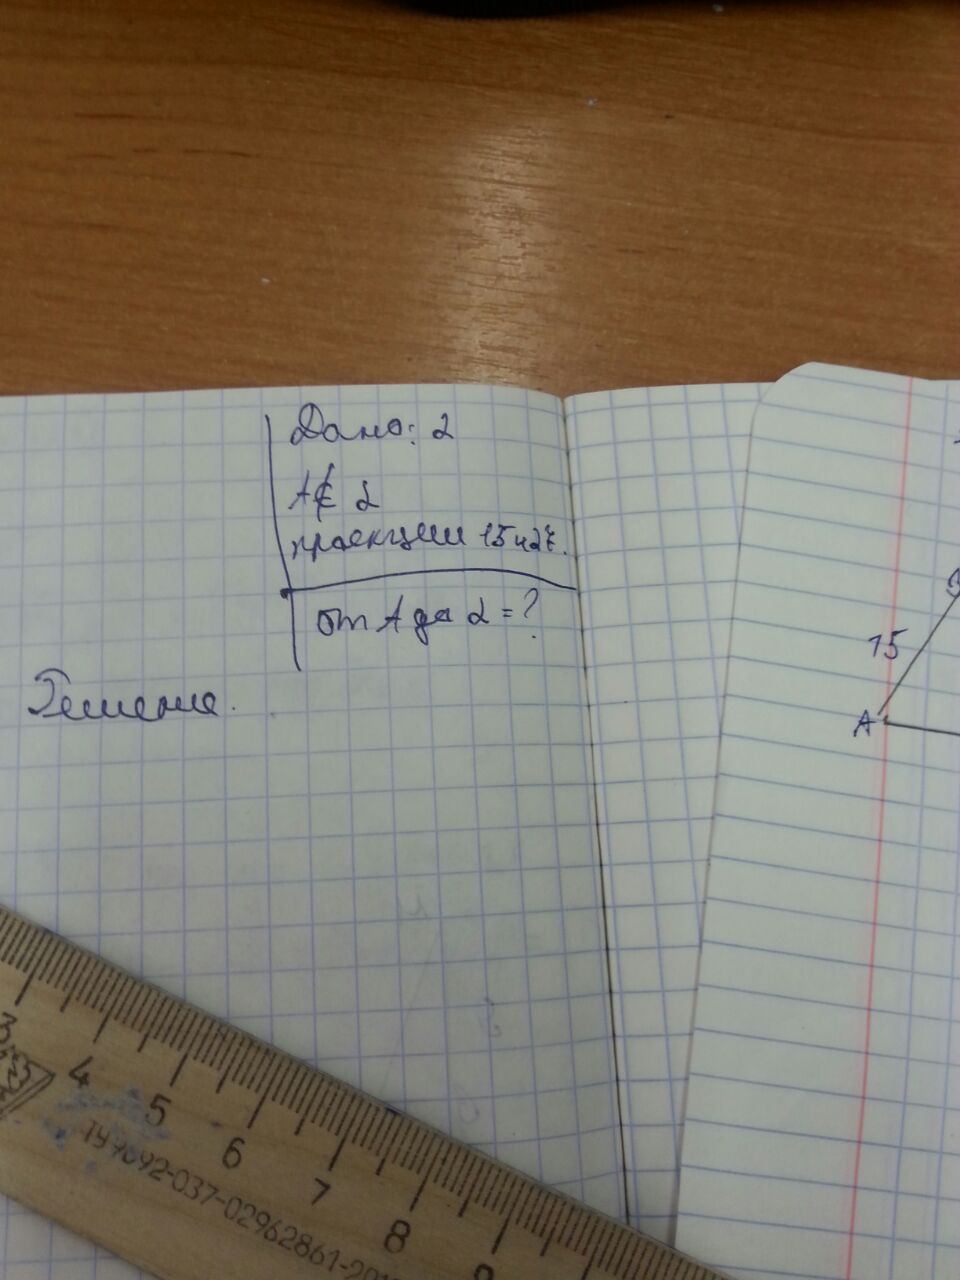 Дано: α
A∉ α
проекции 15 и 27.
от A до α = ?
Решение.
15
A
3
4
5
6
7
8
9
ТУ7092-037-02962861-201